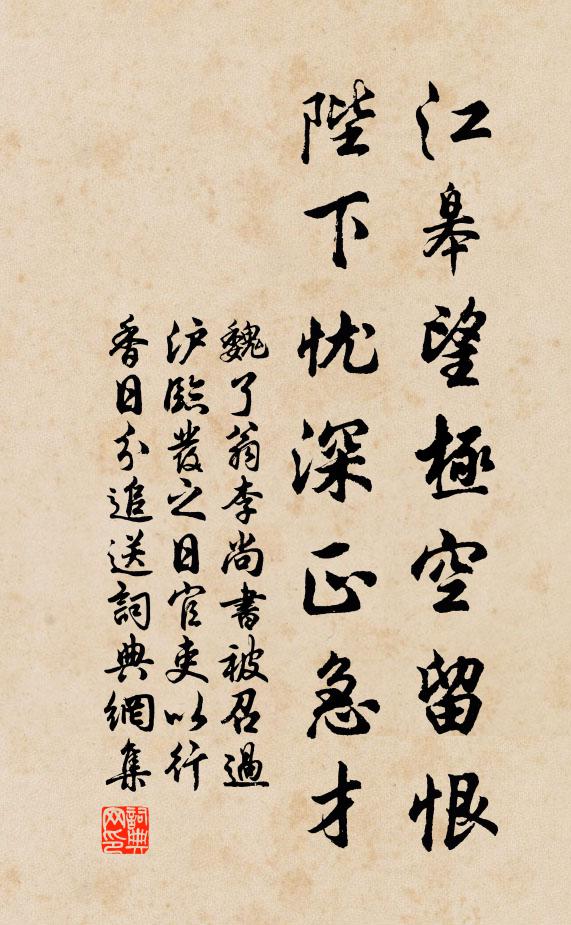 江皋望極空留恨
陛下忧深正急才
魏了翁李尚書被召過
沪臨發之日官吏以行
香日分追送詞典網集
詞典网印